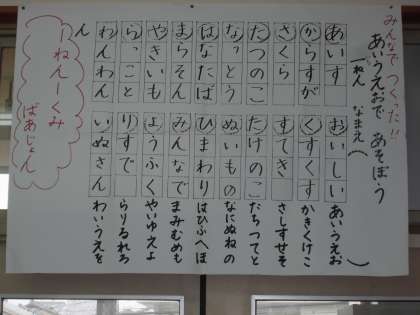 みんなで つくった!!
あいうえおで あそぼう
一ねん なまえ( )
あいす おいしい あいうえお
からすが くすくす かきくけこ
さくら すてき さしすせそ
たつのこ たけのこ たちつてと
なっとう ぬいもの なにぬねの
はなたば ひまわり はひふへほ
まらそん みんなで まみむめも
やきいも ようふく やいゆえよ
らっこと りすで らりるれろ
わんわん いぬさん わいうえを
ん
一ねん一くみ
ばあじょん